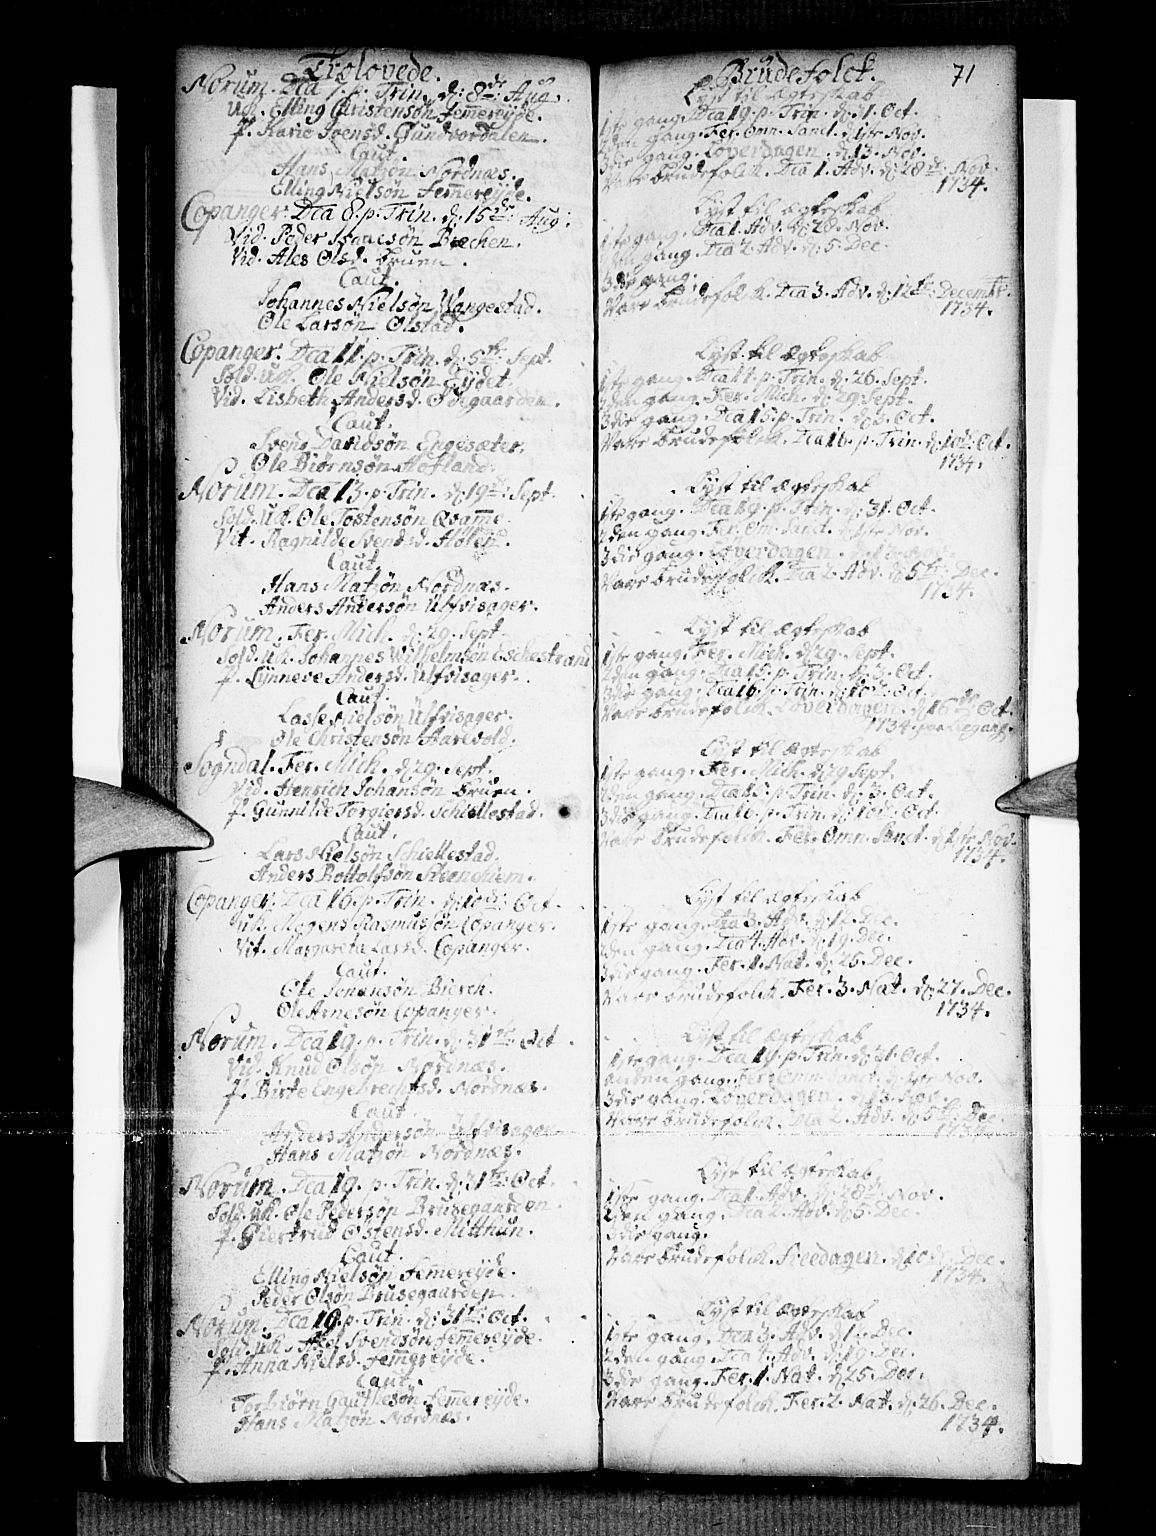 Trolovede.
Norum. Dca 7. p. Trin. d: 8de Aug.
Uk. Elling Christensøn Femmereyde.
p. Karie Joensd. Gundvordalen.
Caut.
Hans Matzøn Nordnæs.
Elling Nielsøn Femmereyde.
Copanger. Dca 8. p. Trin. d: 15de Aug:
Vid. Peder Isaacsøn Bræchen.
Vid. Ales Olsd. Bruen.
Caut.
Johannes Nielsøn Wangestad.
Ole Larsøn Olstad.
Copanger. Dca 11. p. Trin. d: 5te Sept.
Sold. Uk. Ole Nielsøn Eydet.
Vid. Lisbeth Andersd. Ødegaarden.
Caut.
Svend Davidsøn Engesæter.
Ole Biørnsøn Hofland.
Norum. Dca 13. p. Trin. d: 19de Sept.
Sold. Uk. Ole Tostensøn Qvamme.
Vit. Ragnilde Svendsd. Hølen.
Caut.
Hans Matzøn Nordnæs.
Anders Andersøn Ulfvisager.
Norum. Fer. Mich. d: 29. Sept.
Sold. Uk. Johannes Wilhelmsøn Eschestrand
p. Lynneve Andersd. Ulfvisager.
Caut.
Lasse Nielsøn Ulfvisager.
Ole Christensøn Aarevold.
Sogndal. Fer. Mich. d: 29. Sept.
Vid. Henrich Johansøn Bruen.
p. Gunnilde Torgiersd. Schiellestad.
Caut.
Lars Nielsøn Schiellestad.
Anders Bottolfsøn Steenehiem.
Copanger. Dca 16. p. Trin. d: 10de Oct.
Uk. Mogens Rasmussøn Copanger.
Vit. Margareta Larsd. Copanger.
Caut.
Ole Johansøn Bierch.
Ole Arnesøn Copanger.
Norum. Dca 19. p. Trin. d: 31te Oct.
Vid. Knud Olsøn Nordnæs.
p. Birte Engebrechtsd. Nordnæs.
Caut.
Anders Andersøn Ulfvisager.
Hans Matzøn Nordnæs.
Norum. Dca 19. p. Trin. d: 31te Oct.
Sold. Uk. Ole Pedersøn Brusegaarden.
p. Giertrud Ostensd. Mitthun.
Caut.
Elling Nielsøn Femmereyde.
Peder Olsøn Brusegaarden.
Norum. Dca 19. p. Trin. d: 31te Oct.
Sold. Uk. Svendsøn Femmereyde.
p. Anna Nielsd. Femmereyde.
Caut.
Torbiørn Gautlesøn Femmereyde.
Hans Matzøn Nordnæs.
Brudefolck. 71
Lyst til Ægteskab
1ste gang. Dca 19. p. Trin. d: 31. Oct.
2den gang. Fer. Omn. Sanct. d: 1ste Nov.
3die gang. Løverdagen. d: 13. Nov.
Vare Brudefolck. Dca 1. Adv. d: 28de Nov.
1734.
Lyst til Ægteskab
1ste gang. Dca 1. Adv. d: 28. Nov.
2den gang. Dca 2. Adv. d: 5. Dec.
3die gang.
Vare Brudefolck. Dca 3. Adv. d: 12te Decembr.
1734.
Lyst til Ægteskab
1ste gang. Dca 14. p. Trin. d: 26. Sept.
2den gang. Fer. Mich. d: 29. Sept.
3die gang. Dca 15. p. Trin. d: 3. Oct.
Vare Brudefolck. Dca 16. p. Trin. d: 10de Oct.
1734.
Lyst til Ægteskab
1ste gang. Dca 19. p. Trin. d: 31. Oct.
2den gang. Fer. Om. Sanct. d: 1ste Nov.
3die gang. Løverdagen. d: 13. Nov.
Vare Brudefolck. Dca 2. Adv. d: 5te Dec.
1734.
Lyst til Ægteskab
1ste gang. Fer. Mich. d: 29. Sept.
2den gang. Dca 15. p. Trin. d: 3. Oct.
3die gang. Dca 16. p. Trin. d: 10de Oct.
Vare Brudefolck. Løverdagen. d: 16de Oct.
1734.
Lyst til Ægteskab
1ste gang. Fer. Mich. d: 29 Sept.
2den gang. Dca 15. p. Trin. d: 3. Oct.
3die gang. Dca 16. p. Trin. d: 10de Oct.
Vare Brudefolck. Fer. Omn. Sanct. d: 1ste Nov.
1734.
Lyst til Ægteskab
1ste gang. Dca 3. Adv. d: 12. Dec.
2den gang. Dca 4. Adv. d: 19. Dec.
3die gang. Fer. 1. Nat. d: 25. Dec.
Vare Brudefolck. Fer. 3. Nat. d: 27. Dec.
1734.
Lyst til Ægteskab
1ste gang. Dca 19. p. Trin. d: 31. Oct.
anden gang. Fer. Omn. Sanct. d: 1ste Nov.
3die gang. Løverdagen. d: 13. Nov.
Vare Brudefolck. Dca 2. Adv. d: 5te Dec.
1734.
Lyst til Ægteskab
1ste gang. Dca 1. Adv. d: 28de Nov.
2den gang. Dca 2. Adv. d: 5. Dec.
3die gang.
Vare Brudefolck. Dec.
1734.
Lyst til Ægteskab
1ste gang. Dca 3. Adv. d: 12. Dec.
2den gang. Dca 4. Adv. d: 19. Dec.
3die gang. Fer. 1. Nat. d: 25. Dec.
Vare Brudefolck. Fer. 2. Nat. d: 26. Dec.
1734.